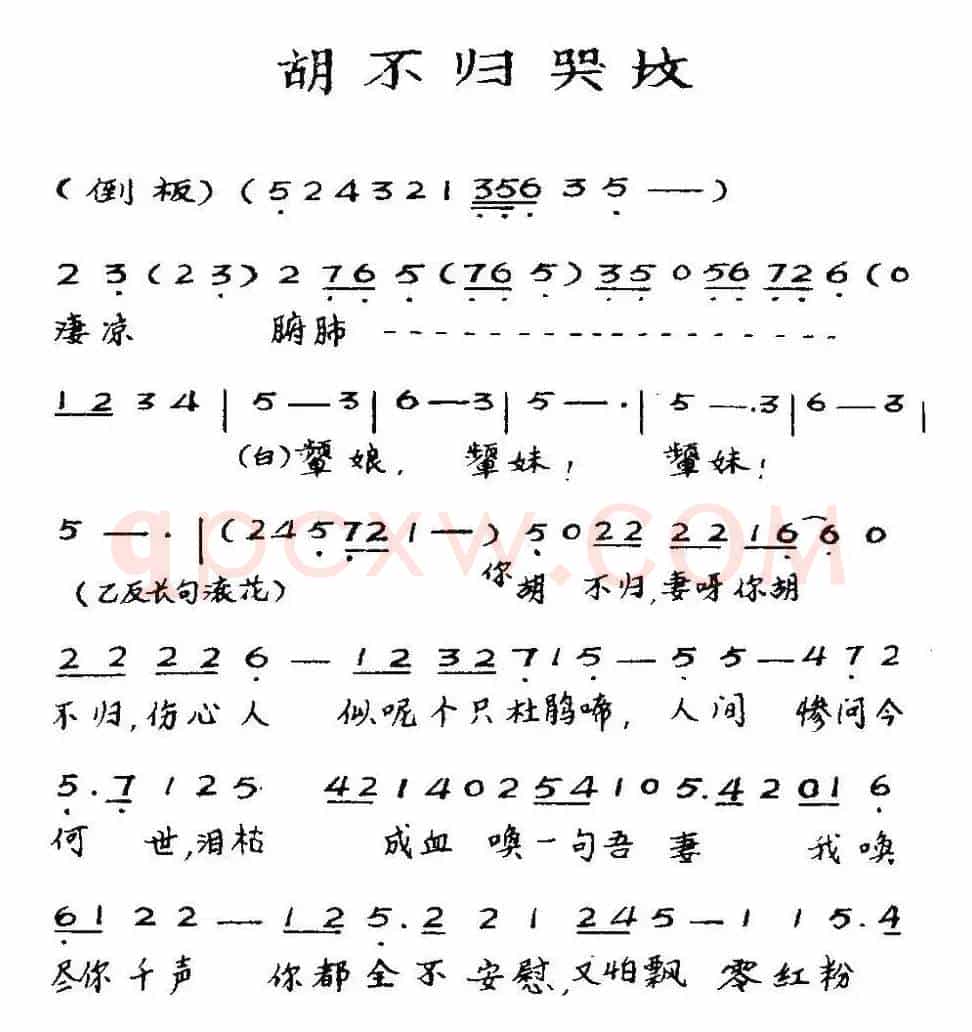 胡不归哭坟
(倒板) (5 2 4 3 2 1 356 3 5 —)
2 3 (2 3) 2 76 5 (76 5) 35 0 56 726 (0
凄凉 腑肺 - - - - - - - - - - - -
12 3 4 | 5 — 3 | 6 — 3 | 5 — · | 5 — ·3 | 6 — 3 |
(白) 颦娘, 颦妹! 颦妹!
5 — · | (2 4 5 72 1 —) 5 0 22 22 16 6 0
(乙反长句滚花) 你胡 不归,妻呀你胡
22 22 6 — 12 32 7 1 5 — 5 5 — 4 7 2
不归,伤心人 似呢个只杜鹃啼, 人间 惨问今
5 . 7 1 2 5 42 1 4 0 2 54 1 0 5.4 2 01 6
何 世,泪枯 成血 唤一句吾 妻 我唤
61 2 2 — 12 5 . 2 2 1 245 — 1 1 5.4
尽你千声 你都全不安慰,又怕飘 零红粉
qpcxw.COM